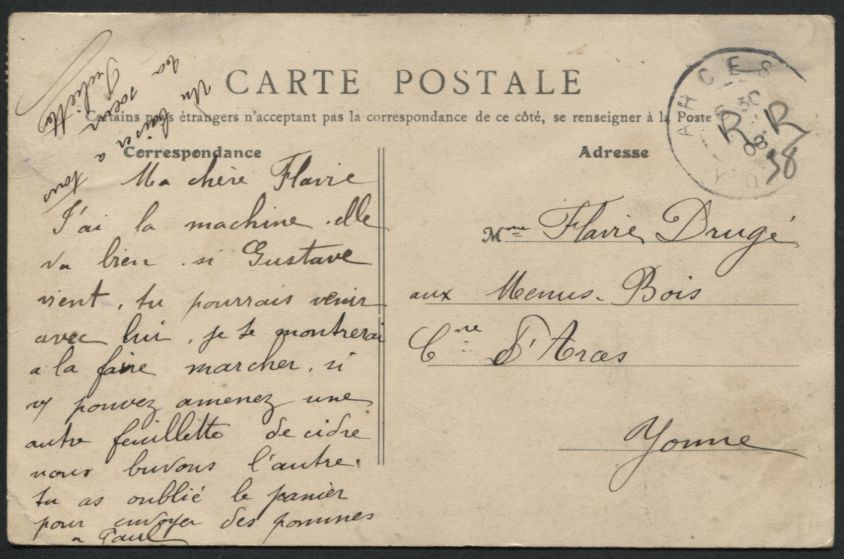 CARTE POSTALE
Certains pays étrangers n'acceptant pas la correspondance de ce côté, se renseigner à la Poste
Correspondance
Ma chère Flavie
J'ai la machine. elle
va bien. si Gustave
vient, tu pourrais venir
avec lui, je te montrerai
a la faire marcher. si
v pouvez amenez une
autre feuillette de cidre
nous buvons l'autre.
tu as oublié le panier
pour envoyer des pommes
a Paul
Un baiser a tous
ta soeur
Juliette
Adresse
Mme Flavie Drugé
aux Menus-Bois
Cne d'Arces
Yonne
ARCES
30
08
R R
38